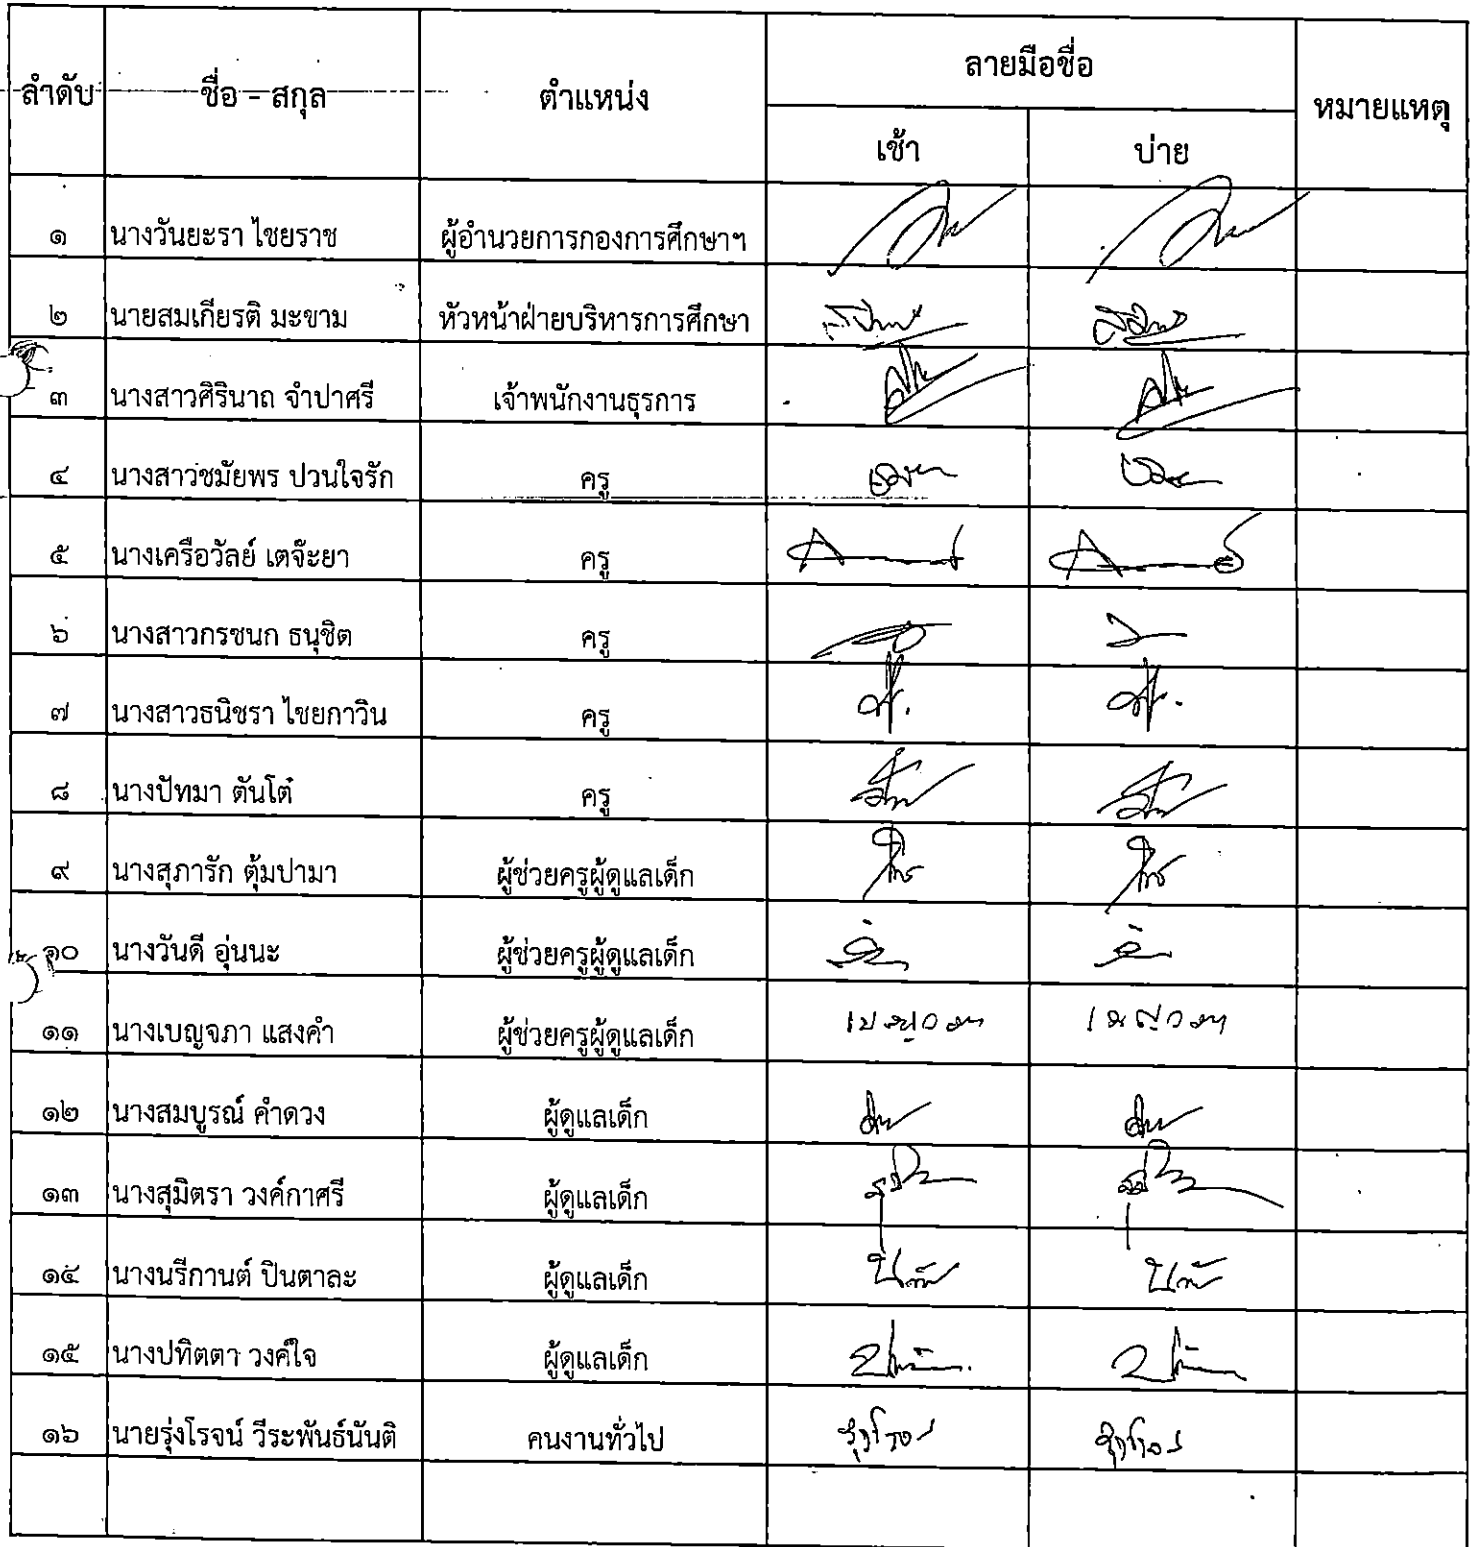 ลำดับ ชื่อ - สกุล ตำแหน่ง ลายมือชื่อ หมายเหตุ
เช้า บ่าย
๑ นางวันยะรา ไชยราช ผู้อำนวยการกองการศึกษาฯ
๒ นายสมเกียรติ มะขาม หัวหน้าฝ่ายบริหารการศึกษา
๓ นางสาวศิรินาถ จำปาศรี เจ้าพนักงานธุรการ
๔ นางสาวชมัยพร ปวนใจรัก ครู
๕ นางเครือวัลย์ เตจ๊ะยา ครู
๖ นางสาวกรชนก ธนุชิต ครู
๗ นางสาวธนิชรา ไชยกาวิน ครู
๘ นางปัทมา ตันโต๋ ครู
๙ นางสุภารัก ตุ้มปามา ผู้ช่วยครูผู้ดูแลเด็ก
๑๐ นางวันดี อุ่นนะ ผู้ช่วยครูผู้ดูแลเด็ก
๑๑ นางเบญจภา แสงคำ ผู้ช่วยครูผู้ดูแลเด็ก
๑๒ นางสมบูรณ์ คำดวง ผู้ดูแลเด็ก
๑๓ นางสุมิตรา วงค์กาศรี ผู้ดูแลเด็ก
๑๔ นางนรีกานต์ ปินตาละ ผู้ดูแลเด็ก
๑๕ นางปทิตตา วงค์ใจ ผู้ดูแลเด็ก
๑๖ นายรุ่งโรจน์ วีระพันธ์นันติ คนงานทั่วไป